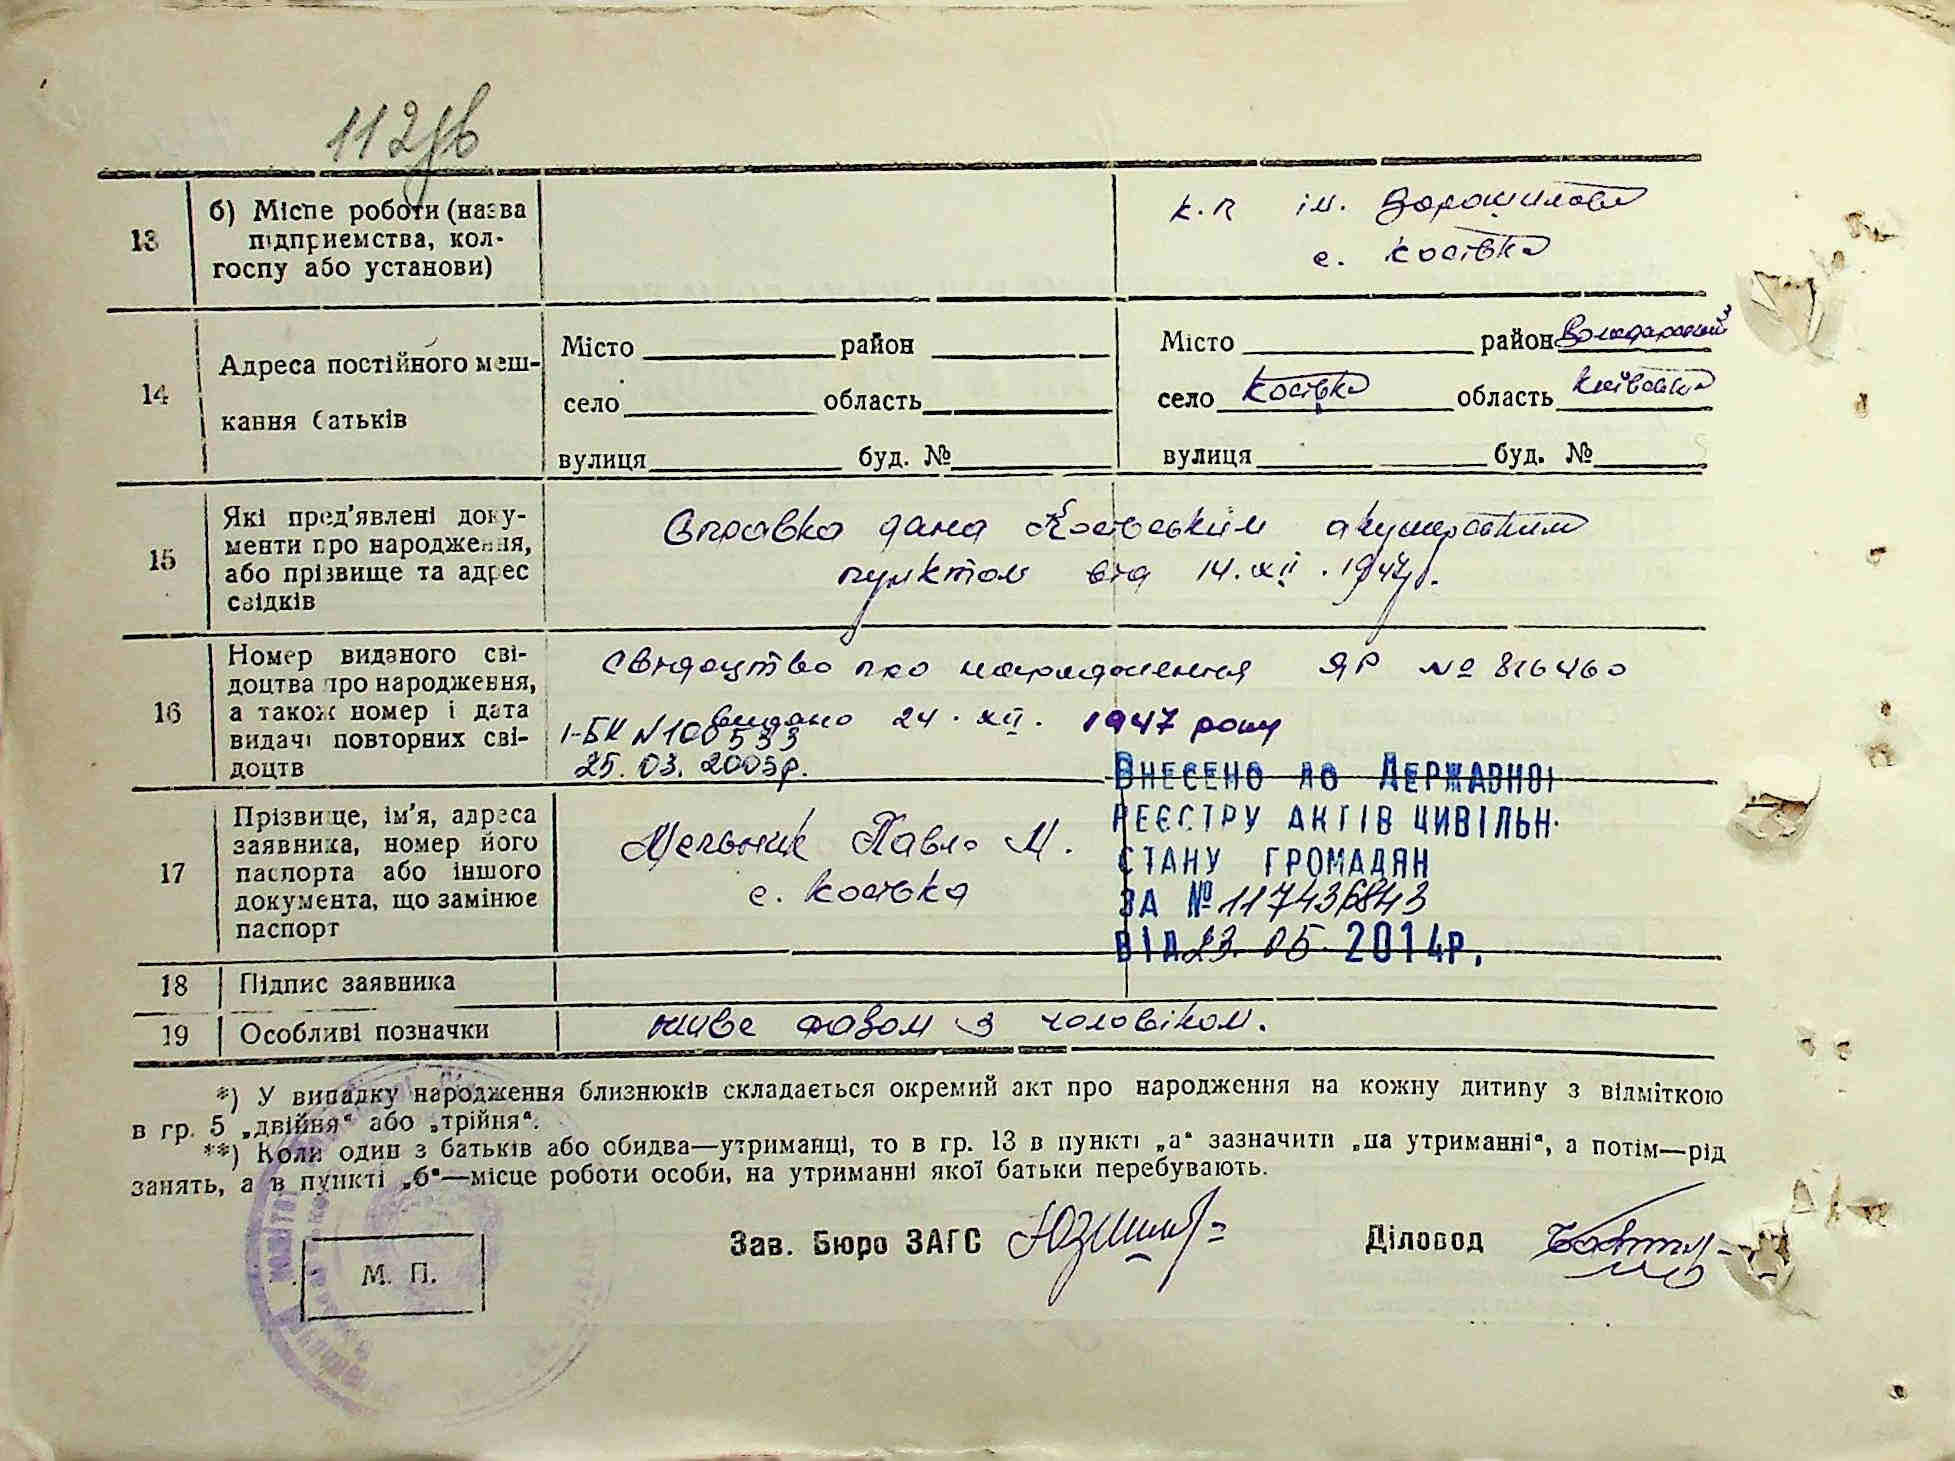 112зв
13
б) Місце роботи (назва
підприємства, кол-
госпу або установи)
к.п ім. Ворошилова
с. Косівка
14
Адреса постійного меш-
кання батьків
Місто район
село область
вулиця буд. №
Місто район Володарський
село Косівка область Київська
вулиця буд. №
15
Які пред'явлені доку-
менти про народження,
або прізвище та адрес
свідків
Справка дана Косівським акушерським
пунктом від 14.XII.1947р.
16
Номер виданого сві-
доцтва про народження,
а також номер і дата
видачі повторних сві-
доцтв
Свидоцтво про народження ЯР № 816460
видано 24.XII. 1947 року
І-БК N 100533
25.03.2005р.
17
Прізвище, ім'я, адреса
заявника, номер його
паспорта або іншого
документа, що замінює
паспорт
Мельник Павло М.
с. Косівка
ВНЕСЕНО ДО ДЕРЖАВНОГ
РЕЄСТРУ АКТІВ ЦИВІЛЬН.
СТАНУ ГРОМАДЯН
ЗА № 117436843
ВІД 23.05.2014р.
18
Підпис заявника
19
Особливі позначки
живе разом з чоловіком.
*) У випадку народження близнюків складається окремий акт про народження на кожну дитину з відміткою
в гр. 5 „двійня“ або „трійня“.
**) Коли один з батьків або обидва—утриманці, то в гр. 13 в пункті „а“ зазначити „на утриманні“, а потім—рід
занять, а в пункті „б“—місце роботи особи, на утриманні якої батьки перебувають.
Зав. Бюро ЗАГС
Діловод
М. П.